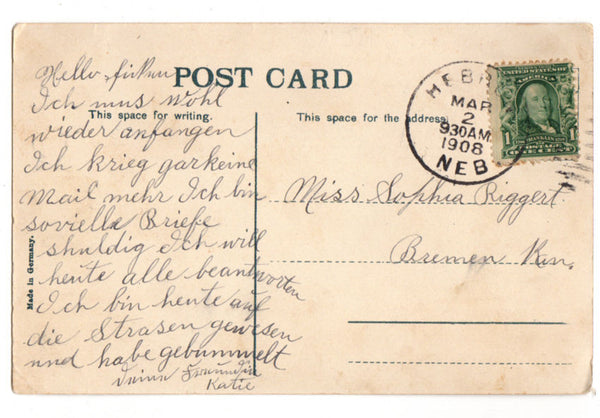 POST CARD
This space for writing.
This space for the address.
Made in Germany.
HEBR
MAR
2
930AM
1908
NEB
UNITED STATES OF
AMERICA
1
1
Hello
Ich mus wohl
wieder anfangen
Ich krieg garkeine
Mail mehr Ich bin
sovielle Briefe
shuldig Ich will
heute alle beantworten
Ich bin heute auf
die Strasen gewesen
und habe gebummelt
deine Freundin
Katie
Miss Sophia Riggert
Bremen Kan.